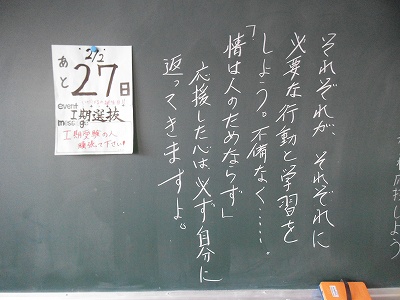 応援しよう
それぞれが それぞれに
必要な行動と学習を
しよう。不備なく……。
「情は人のためならず」
応援した心は必ず自分に
返ってきますよ。
2/2
あと
27日
event
I期選抜
message
I期受験の人
頑張って下さい!